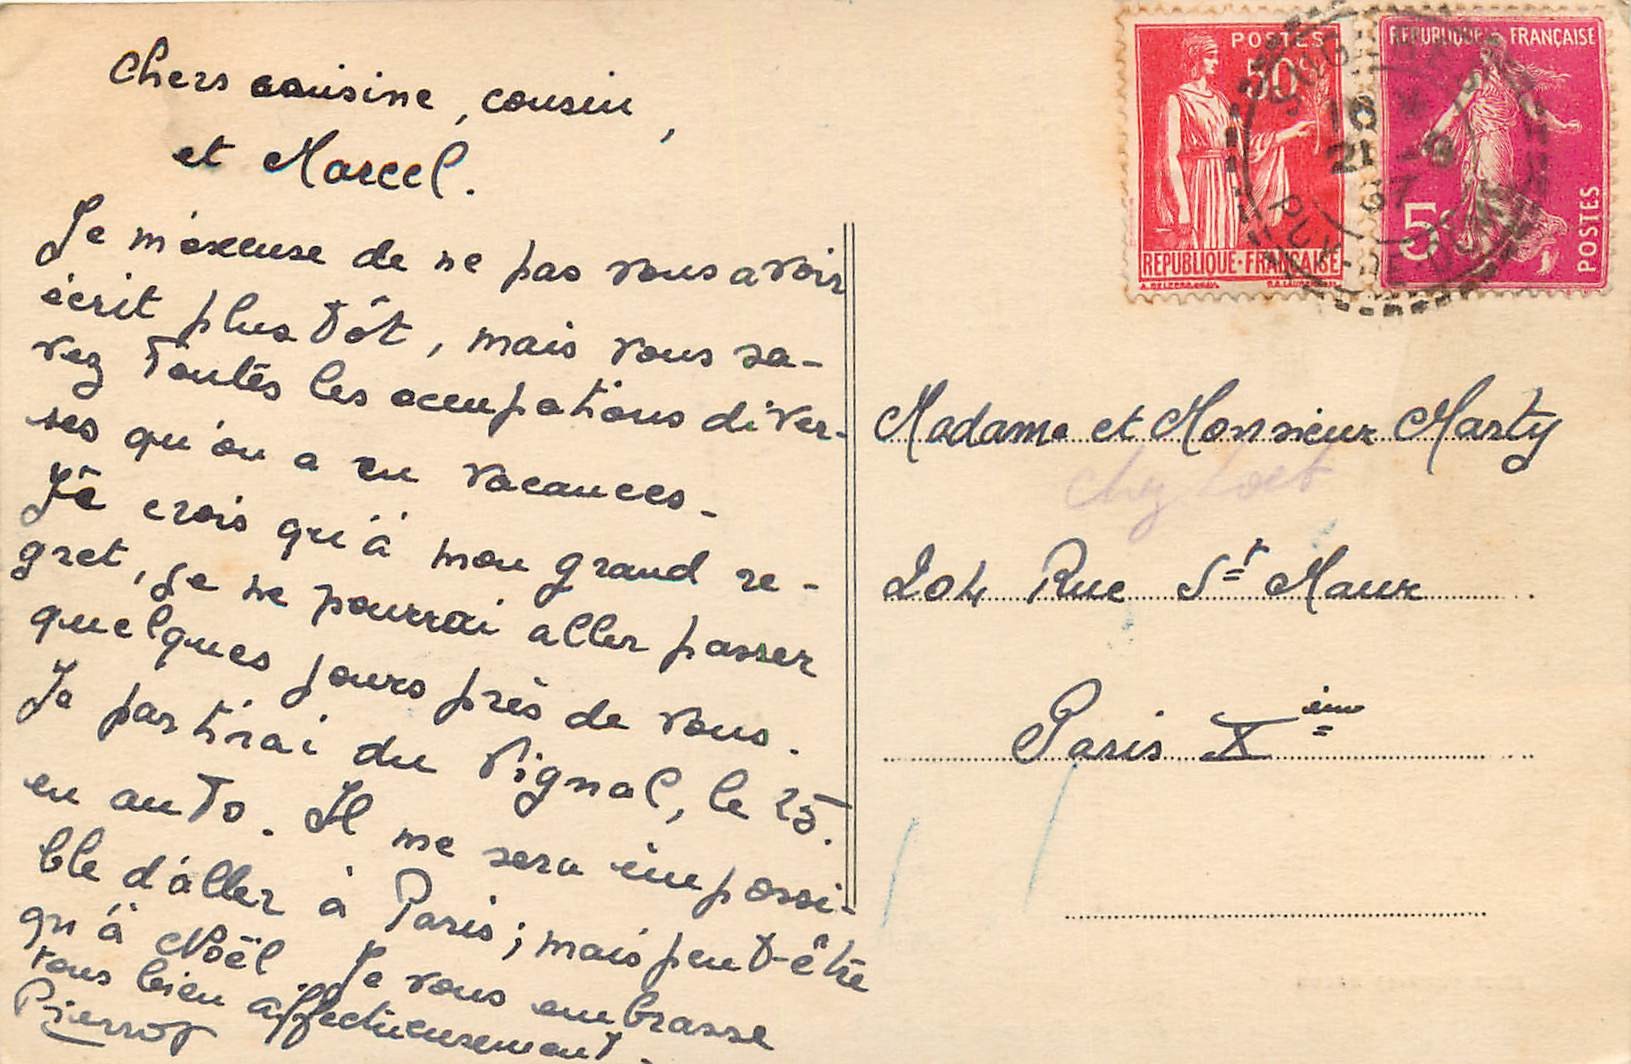 Chers cousine, cousin,
et Marcel.
Je m'excuse de ne pas vous avoir
écrit plus tôt, mais vous sa-
vez toutes les occupations diver-
ses qu'on a en vacances.
Je crois qu'à mon grand re-
gret, je ne pourrai aller passer
quelques jours près de vous.
Je partirai du Vignal, le 25.
en auto. Il me sera impossi-
ble d'aller à Paris; mais peut-être
qu'à Noël. Je vous embrasse
tous bien affectueusement.
Pierrot
POSTES
50c
REPUBLIQUE·FRANÇAISE
REPUBLIQUE FRANÇAISE
5c
POSTES
10
21 -9
37
PUY-DE-DOME
Madame et Monsieur Marty
chez
204 Rue St Maur
Paris Xième